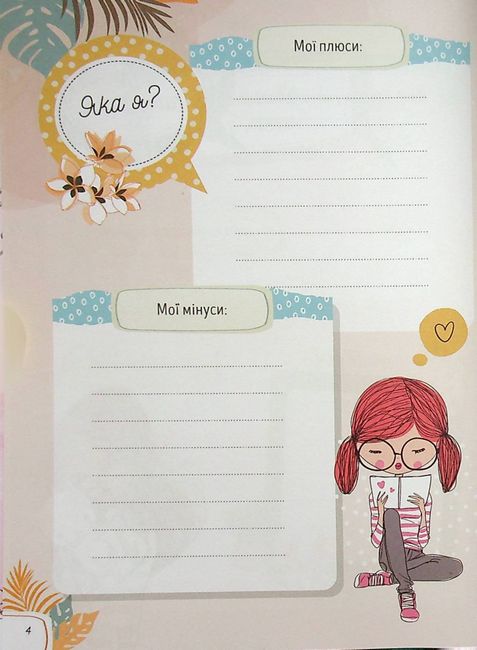 Яка я?
Мої плюси:
Мої мінуси:
4